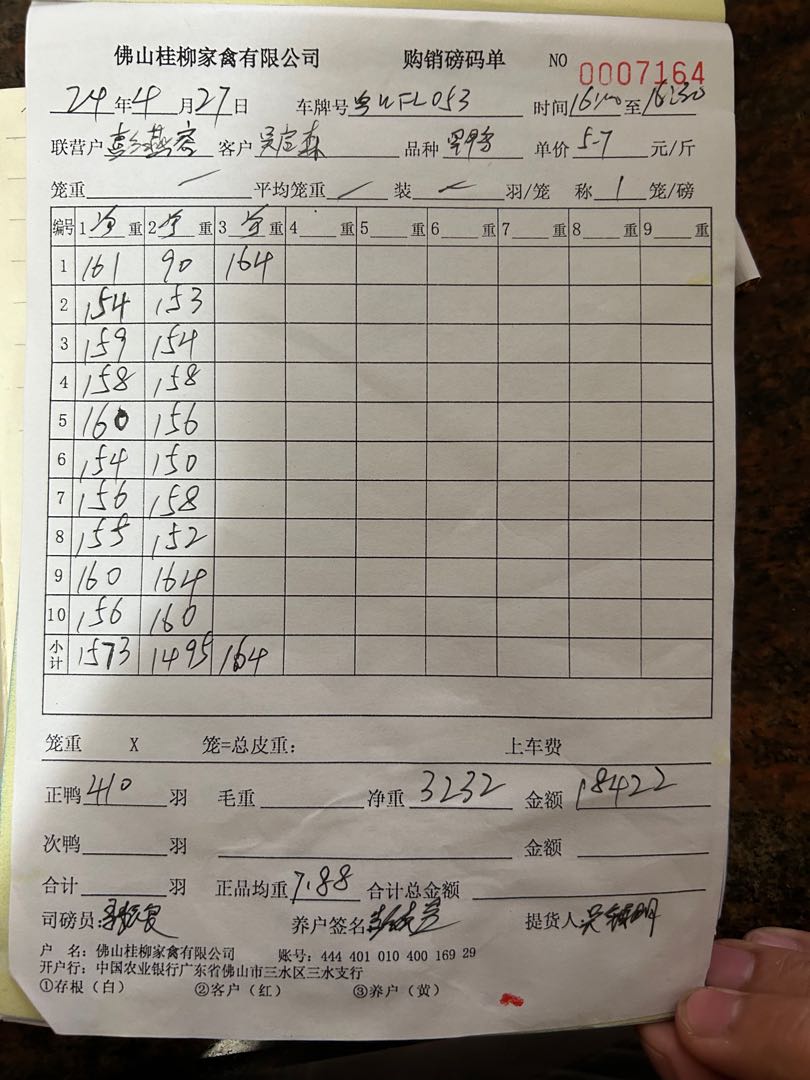 佛山桂柳家禽有限公司 购销磅码单 NO 0007164
24年4月27日 车牌号 时间 至16:30
联营户 客户 品种 单价5.7元/斤
笼重 — 平均笼重 — 装 — 羽/笼 称 1 笼/磅
编号 1 净 重 2 净 重 3 净 重 4 重 5 重 6 重 7 重 8 重 9 重
1 161 90 164
2 154 153
3 159 154
4 158 158
5 160 156
6 154 150
7 156 158
8 155 152
9 160 164
10 156 160
小计 1573 1495 164
笼重 X 笼=总皮重: 上车费
正鸭 410 羽 毛重 净重 3232 金额 18422
次鸭 羽 金额
合计 羽 正品均重 7.88 合计总金额
司磅员: 养户签名 提货人:
户 名: 佛山桂柳家禽有限公司 账号: 444 401 010 400 169 29
开户行: 中国农业银行广东省佛山市三水区三水支行
①存根（白） ②客户（红） ③养户（黄）